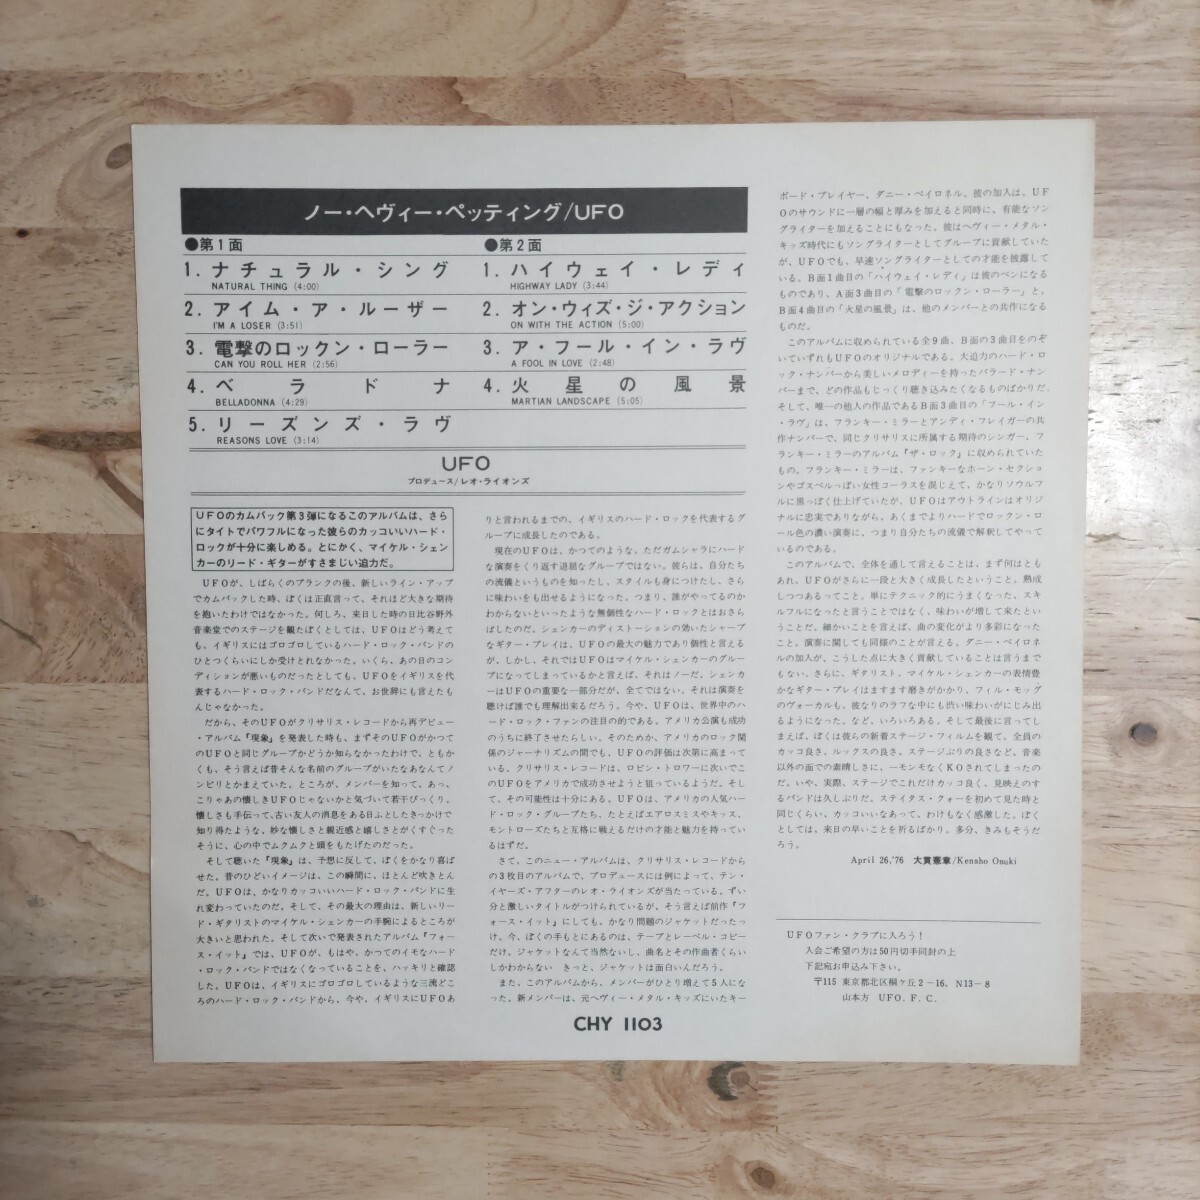 ノー・ヘヴィー・ペッティング/UFO
●第1面
1. ナチュラル・シング
NATURAL THING (4:00)
2. アイム・ア・ルーザー
I'M A LOSER (3:51)
3. 電撃のロックン・ローラー
CAN YOU ROLL HER (2:56)
4. ベラドナ
BELLADONNA (4:29)
5. リーズンズ・ラヴ
REASONS LOVE (3:14)
●第2面
1. ハイウェイ・レディ
HIGHWAY LADY (3:44)
2. オン・ウィズ・ジ・アクション
ON WITH THE ACTION (5:00)
3. ア・フール・イン・ラヴ
A FOOL IN LOVE (2:48)
4. 火星の風景
MARTIAN LANDSCAPE (5:05)
UFO
プロデュース/レオ・ライオンズ
UFOのカムバック第3弾になるこのアルバムは、さら
にタイトでパワフルになった彼らのカッコいいハード・
ロックが十分に楽しめる。とにかく、マイケル・シェン
カーのリード・ギターがすさまじい迫力だ。
UFOが、しばらくのブランクの後、新しいライン・アップ
でカムバックした時、ぼくは正直言って、それほど大きな期待
を抱いたわけではなかった。何しろ、来日した時の日比谷野外
音楽堂でのステージを観たぼくとしては、UFOはどう考えて
も、イギリスにはゴロゴロしているハード・ロック・バンドの
ひとつくらいにしか受けとれなかった。いくら、あの日のコン
ディションが悪いものだったとしても、UFOをイギリスを代
表するハード・ロック・バンドだなんて、お世辞にも言えたも
んじゃなかった。
だから、そのUFOがクリサリス・レコードから再デビュー
・アルバム『現象』を発表した時も、まずそのUFOがかつて
のUFOと同じグループかどうか知らなかったわけで、ともか
くも、そう言えば昔そんな名前のグループがいたなあなんてノ
ンビリとかまえていた。ところが、メンバーを知って、あっ、
こりゃあの懐しきUFOじゃないかと気づいて若干びっくり。
懐しさも手伝って、古い友人の消息をある日ふとしたきっかけで
知り得たような、妙な懐しさと親近感と嬉しさとがくすぐった
そうに、心の中でムクムクと頭をもたげたのだった。
そして聴いた『現象』は、予想に反して、ぼくをかなり喜ば
せた。昔のひどいイメージは、この瞬間に、ほとんど吹きとん
だ。UFOは、かなりカッコいいハード・ロック・バンドに生
れ変わっていたのだ。そして、その最大の理由は、新しいリー
ド・ギタリストのマイケル・シェンカーの手腕によるところが
大きいと思われた。そして次いで発表されたアルバム『フォー
ス・イット』では、UFOが、もはや、かつてのイモなハード
・ロック・バンドではなくなっていることを、ハッキリと確認
した。UFOは、イギリスにゴロゴロしているような三流どこ
ろのハード・ロック・バンドから、今や、イギリスにUFOあ
りと言われるまでの、イギリスのハード・ロックを代表するグ
ループに成長したのである。
現在のUFOは、かつてのような、ただガムシャラにハード
な演奏をくり返す退屈なグループではない。彼らは、自分たち
の流儀というものを知ったし、スタイルも身につけたし、さら
に味わいをも出せるようになった。つまり、誰がやってるのか
わからないといったような無個性なハード・ロックとはおさら
ばしたのだ。シェンカーのディストーションの効いたシャープ
なギター・プレイは、UFOの最大の魅力であり個性と言える
が、しかし、それではUFOはマイケル・シェンカーのグルー
プになってしまっているかと言えば、それはノーだ。シェンカ
ーはUFOの重要な一部分だが、全てではない。それは演奏を
聴けば誰でも理解出来るだろう。今や、UFOは、世界中のハ
ード・ロック・ファンの注目の的である。アメリカ公演も成功
のうちに終了させたらしい。そのためか、アメリカのロック関
係のジャーナリズムの間でも、UFOの評価は次第に高まって
いる。クリサリス・レコードは、ロビン・トロワーに次いでこ
のUFOをアメリカで成功させようと狙っているようだ。そし
て、その可能性は十分にある。UFOは、アメリカの人気ハー
ド・ロック・グループたち、たとえばエアロスミスやキッス、
モントローズたちと互格に戦えるだけの才能と魅力を持ってい
るはずだ。
さて、このニュー・アルバムは、クリサリス・レコードから
の3枚目のアルバムで、プロデュースには例によって、テン・
イヤーズ・アフターのレオ・ライオンズが当たっている。ずい
分と激しいタイトルがつけられているが、そう言えば前作『フ
ォース・イット』にしても、かなり問題のジャケットだったっ
け。今、ぼくの手もとにあるのは、テープとレーベル・コピー
だけ。ジャケットなんて当然ないし、曲名とその作曲者くらい
しかわからない きっと、ジャケットは面白いんだろう。
また、このアルバムから、メンバーがひとり増えて5人にな
った。新メンバーは、元ヘヴィー・メタル・キッズにいたキー
ボード・プレイヤー、ダニー・ペイロネル。彼の加入は、UF
Oのサウンドに一層の幅と厚みを加えると同時に、有能なソン
グライターを加えることにもなった。彼はヘヴィー・メタル・
キッズ時代にもソングライターとしてグループに貢献していた
が、UFOでも、早速ソングライターとしての才能を披露して
いる。B面1曲目の「ハイウェイ・レディ」は彼のペンになる
ものであり、A面3曲目の「電撃のロックン・ローラー」と、
B面4曲目の「火星の風景」は、他のメンバーとの共作になる
ものだ。
このアルバムに収められている全9曲、B面の3曲目をのぞ
いていずれもUFOのオリジナルである。大迫力のハード・ロ
ック・ナンバーから美しいメロディーを持ったバラード・ナン
バーまで、どの作品もじっくり聴き込みたくなるものばかりだ。
そして、唯一の他人の作品であるB面3曲目の「フール・イン
・ラヴ」は、フランキー・ミラーとアンディ・フレイザーの共
作ナンバーで、同じクリサリスに所属する期待のシンガー、フ
ランキー・ミラーのアルバム『ザ・ロック』に収められていた
もの。フランキー・ミラーは、ファンキーなホーン・セクショ
ンやゴスペルっぽい女性コーラスを混じえて、かなりソウルフ
ルに黒っぽく仕上げていたが、UFOはアウトラインはオリジ
ナルに忠実でありながら、あくまでよりハードでロックン・ロ
ール色の濃い演奏に、つまり自分たちの流儀で解釈してやって
いる。
このアルバムで、全体を通して言えることは、まず何はとも
あれ、UFOがさらに一段と大きく成長したということ。熟成
しつつあるってこと。単にテクニック的にうまくなった、スキ
ルフルになったと言うことではなく、味わいが増して来たとい
うことだ。細かいことを言えば、曲の変化がより多彩になった
こと。演奏に関しても同様のことが言える。ダニー・ペイロネ
ルの加入が、こうした点に大きく貢献していることは言うまで
もない。さらに、ギタリスト、マイケル・シェンカーの表情豊
かなギター・プレイはますます磨きがかかり、フィル・モッグ
のヴォーカルも、彼なりのラフな中にも渋い味わいがにじみ出
るようになった。など、いろいろある。そして最後に言ってし
まえば、ぼくは彼らの新着ステージ・フィルムを観て、全員の
カッコ良さ、ルックスの良さ、ステージぶりの良さなど、音楽
以外の面での素晴しさに、一モンモなくKOされてしまったの
だ。いや、実際、ステージでこれだけカッコ良く、見映えのす
るバンドは久しぶりだ。ステイタス・クォーを初めて見た時と
同じくらい、カッコいいなあって、わけもなく感激した。ぼく
としては、来日の早いことを祈るばかり。多分、きみもそうだ
ろう。
April 26,'76 大貫憲章/Kensho Onuki
UFOファン・クラブに入ろう!
入会ご希望の方は50円切手同封の上
下記宛お申込み下さい。
〒115 東京都北区桐ケ丘2-16、N13-8
山本方 UFO. F. C.
CHY 1103